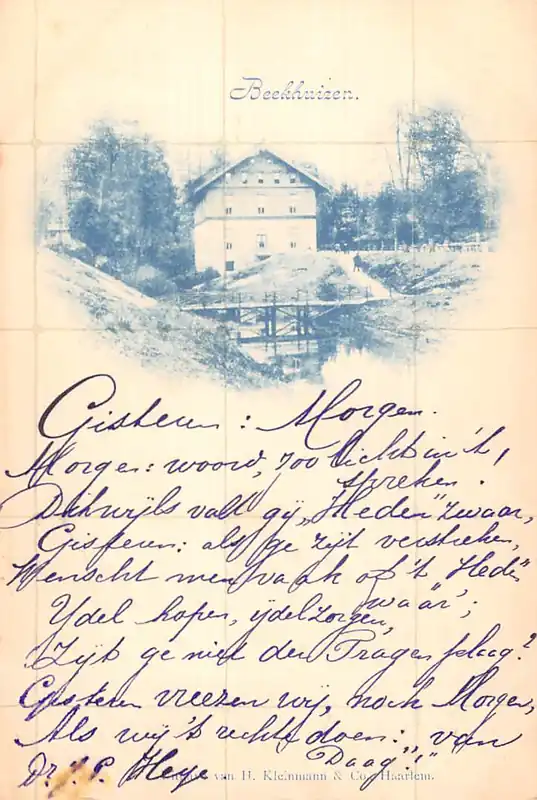 Beekhuizen.
Gisteren : Morgen.
Morgen: woord, zoo licht in 't
spreken.
Dikwijls valt gij „Heden" zwaar,
Gisteren: als ge zijt verstreken,
Wenscht men vaak of 't „Heden"
waar;
Ydel hopen, ijdel zorgen,
Zijt ge niet der Tragen plaag?
Gisteren vreezen wij, noch Morgen,
Als wij 't rechte doen: „van
Daag!"
Dr. J. P. Heye
van H. Kleinmann & Co. Haarlem.